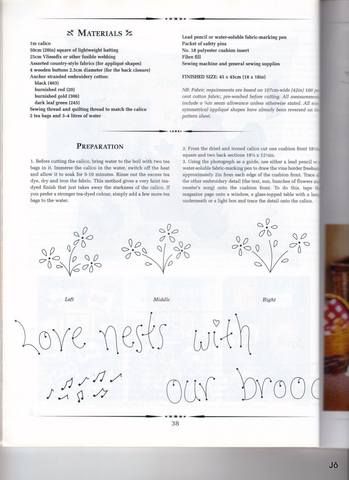 MATERIALS
1m calico
50cm (20in) square of lightweight batting
25cm Vliesofix or other fusible webbing
Assorted country-style fabrics (for appliqué shapes)
4 wooden buttons 2.5cm diameter (for the back closure)
Anchor stranded embroidery cotton:
black (403)
burnished red (20)
burnished gold (306)
dark leaf green (245)
Sewing thread and quilting thread to match the calico
2 tea bags and 3-4 litres of water
Lead pencil or water-soluble fabric-marking pen
Packet of safety pins
No. 18 polyester cushion insert
Fibre fill
Sewing machine and general sewing supplies
FINISHED SIZE: 45 x 45cm (18 x 18in)
NB: Fabric requirements are based on 107cm-wide (42in) 100 per
cent cotton fabric, pre-washed before cutting. All measurements
include a ¼in seam allowance unless otherwise stated. All
symmetrical appliqué shapes have already been reversed on the
pattern sheet.
PREPARATION
1. Before cutting the calico, bring water to the boil with two tea
bags in it. Immerse the calico in the water, switch off the heat
and allow it to soak for 5-10 minutes. Rinse out the excess tea
dye, dry and iron the fabric. This method gives a very faint tea-
dyed finish that just takes away the starkness of the calico. If
you prefer a stronger tea-dyed colour, simply add a few more tea
bags to the water.
2. From the dried and ironed calico cut one cushion front
square and two back sections
3. Using the photograph as a guide, use either a lead pencil or
water-soluble fabric-marking pen to draw the vine border freehand
approximately 2in from each edge of the cushion front. Trace
the other embroidery detail (the text, sun, bunches of flowers and
rooster's song) onto the cushion front. To do this, tape the
magazine page onto a window, a glass-topped table with a lamp
underneath or a light box and trace the detail onto the calico.
Left
Middle
Right
Love nests with
our brood
38
Jô